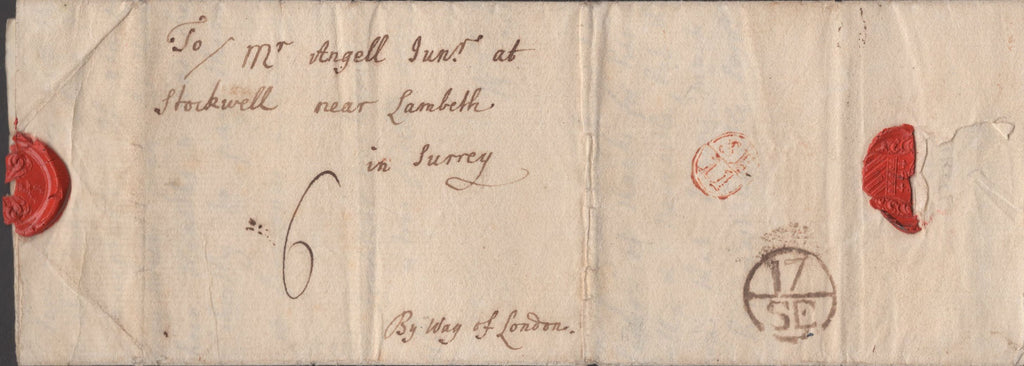 To Mr Angell Junr. at
Stockwell near Lambeth
in Surrey
6
By Way of London.
17
SE